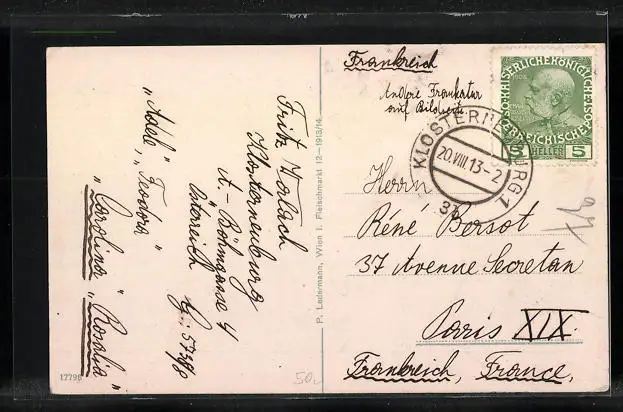 Frankreich
Andere Frankatur
auf Bildseite.
KAISERLICHE KÖNIGLICHE
ÖSTERREICHISCHE
5 HELLER 5
KLOSTERNEUBURG 1
20.VIII.13-2
Herrn
Réné Bersot
37 Avenue Secretan
Paris XIX.
Frankreich, France.
Fritz Walach
Klosterneuburg
A.-Böhmgasse 4
Österreich
"Adele", "Teodora"
"Carolina" "Rosalia"
P. Ledermann, Wien I. Fleischmarkt 12 — 1913/14
50.-